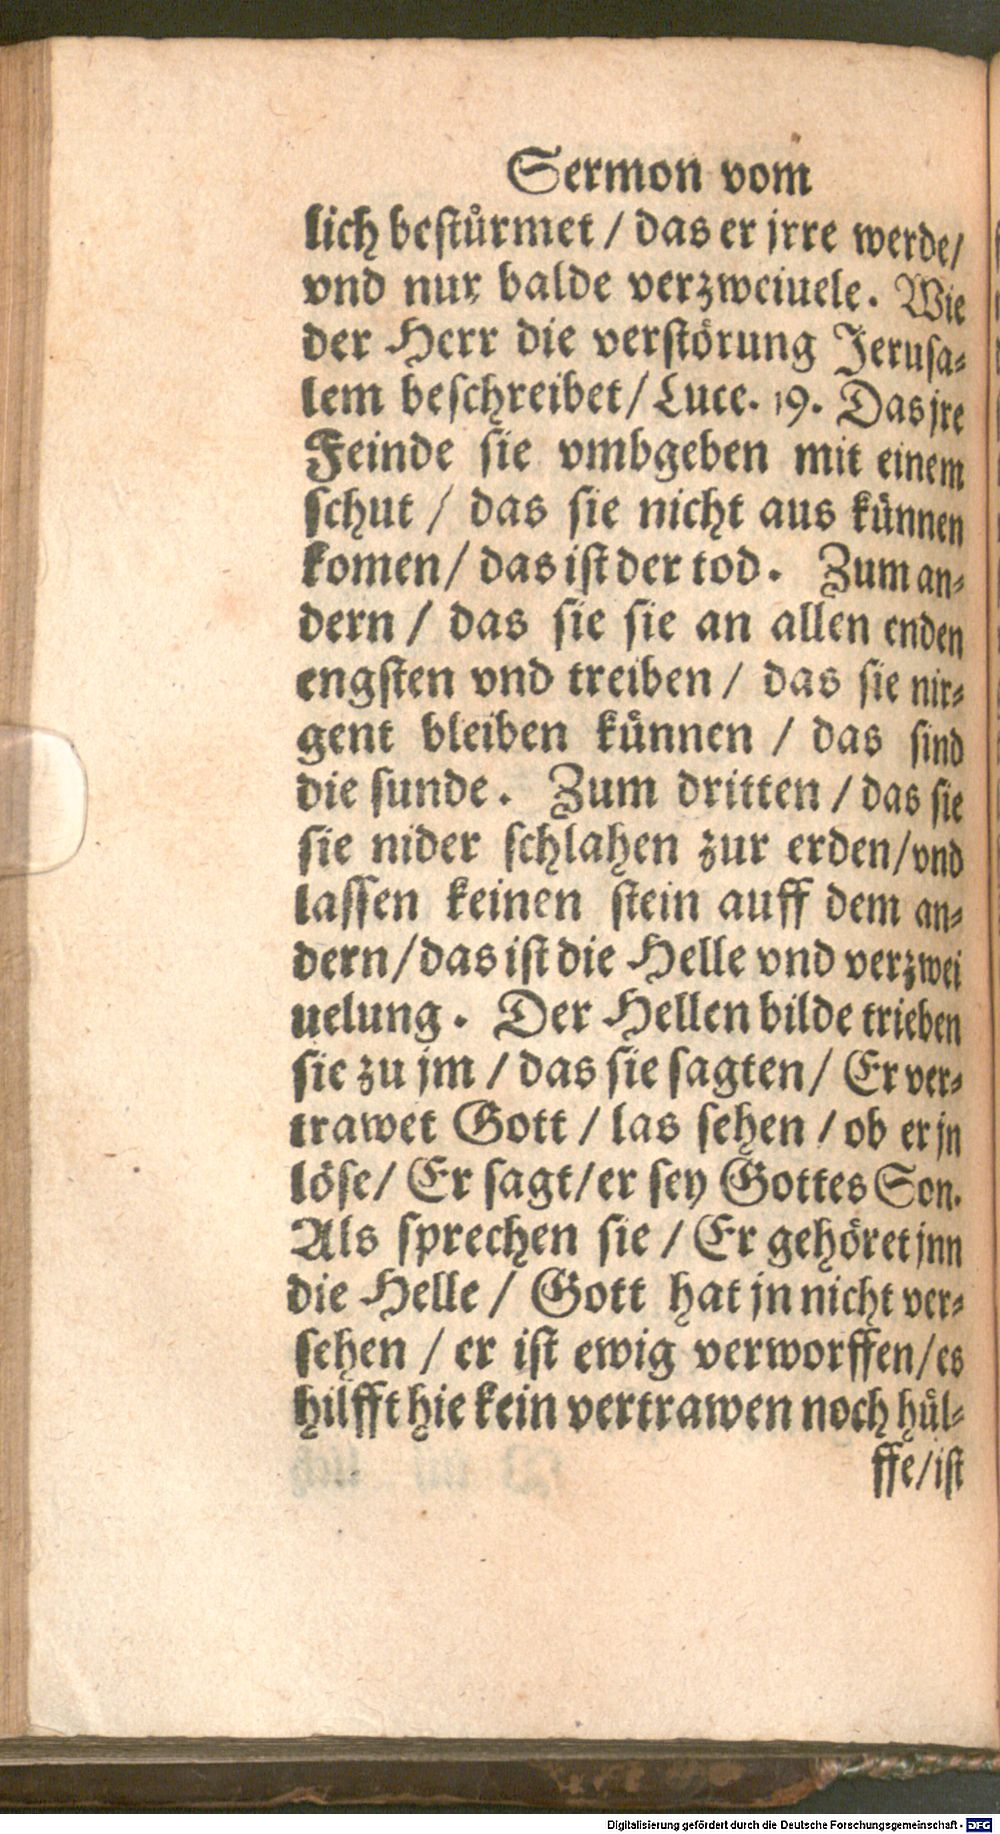 Sermon vom
lich beſtuͤrmet / das er jrre werde/
vnd nur balde verzweiuele. Wie
der Herr die verſtoͤrung Jeruſa⸗
lem beſchreibet/ Luce. 19. Das jre
Feinde ſie vmbgeben mit einem
ſchut / das ſie nicht aus kuͤnnen
komen/ das iſt der tod. Zum an⸗
dern / das ſie ſie an allen enden
engſten vnd treiben/ das ſie nir⸗
gent bleiben kuͤnnen / das ſind
die ſunde. Zum dritten / das ſie
ſie nider ſchlahen zur erden/vnd
laſſen keinen ſtein auff dem an⸗
dern/das iſt die Helle vnd verzwei
uelung. Der Hellen bilde trieben
ſie zu jm / das ſie ſagten/ Er ver⸗
trawet Gott / las ſehen / ob er jn
loͤſe/ Er ſagt/er ſey Gottes Son.
Als ſprechen ſie / Er gehoͤret jnn
die Helle / Gott hat jn nicht ver⸗
ſehen / er iſt ewig verworffen/es
hilfft hie kein vertrawen noch huͤl⸗
ffe/iſt
Digitalisierung gefördert durch die Deutsche Forschungsgemeinschaft - DFG